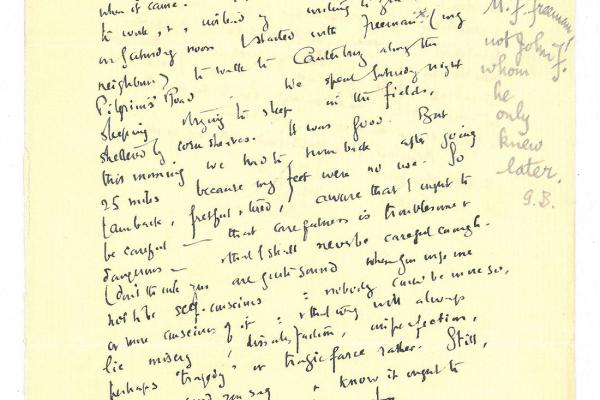 when it came.
to walk, &, instead of writing to you
on Saturday noon I started with Freeman* (my
neighbour) to walk to Canterbury along the
Pilgrims' Road. We spent Saturday night
sleeping trying to sleep in the fields,
sheltered by corn sheaves. It was good. But
this morning we had to turn back after going
25 miles because my feet were no use. So
I am back, fretful & tired, aware that I ought to
be careful — that carefulness is troublesome &
dangerous — that I shall never be careful enough.
I don't think you are quite sound when you urge me
not to be self-conscious nobody could be more so,
or more conscious of it: & that way will always
lie misery, dissatisfaction, imperfection,
perhaps 'tragedy' or tragic farce rather. Still,
you say I know it ought to
M. J. Freeman!
not John F.
whom
he
only
knew
later.
G.B.